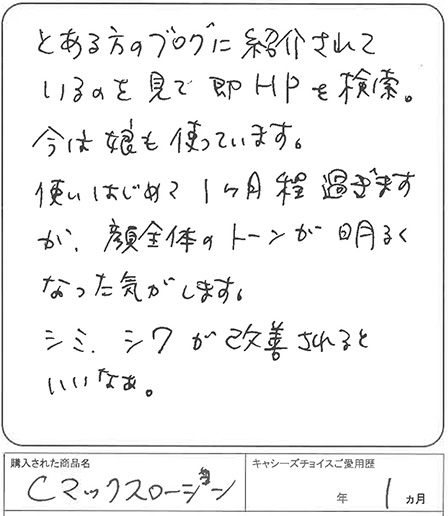 とある方のブログに紹介されて
いるのを見て即HPを検索。
今は娘も使っています。
使いはじめて1ヶ月程過ぎます
が、顔全体のトーンが明るく
なった気がします。
シミ、シワが改善されると
いいなぁ。
購入された商品名
Cマックスローション
キャシーズチョイスご愛用歴
年 1 ヵ月